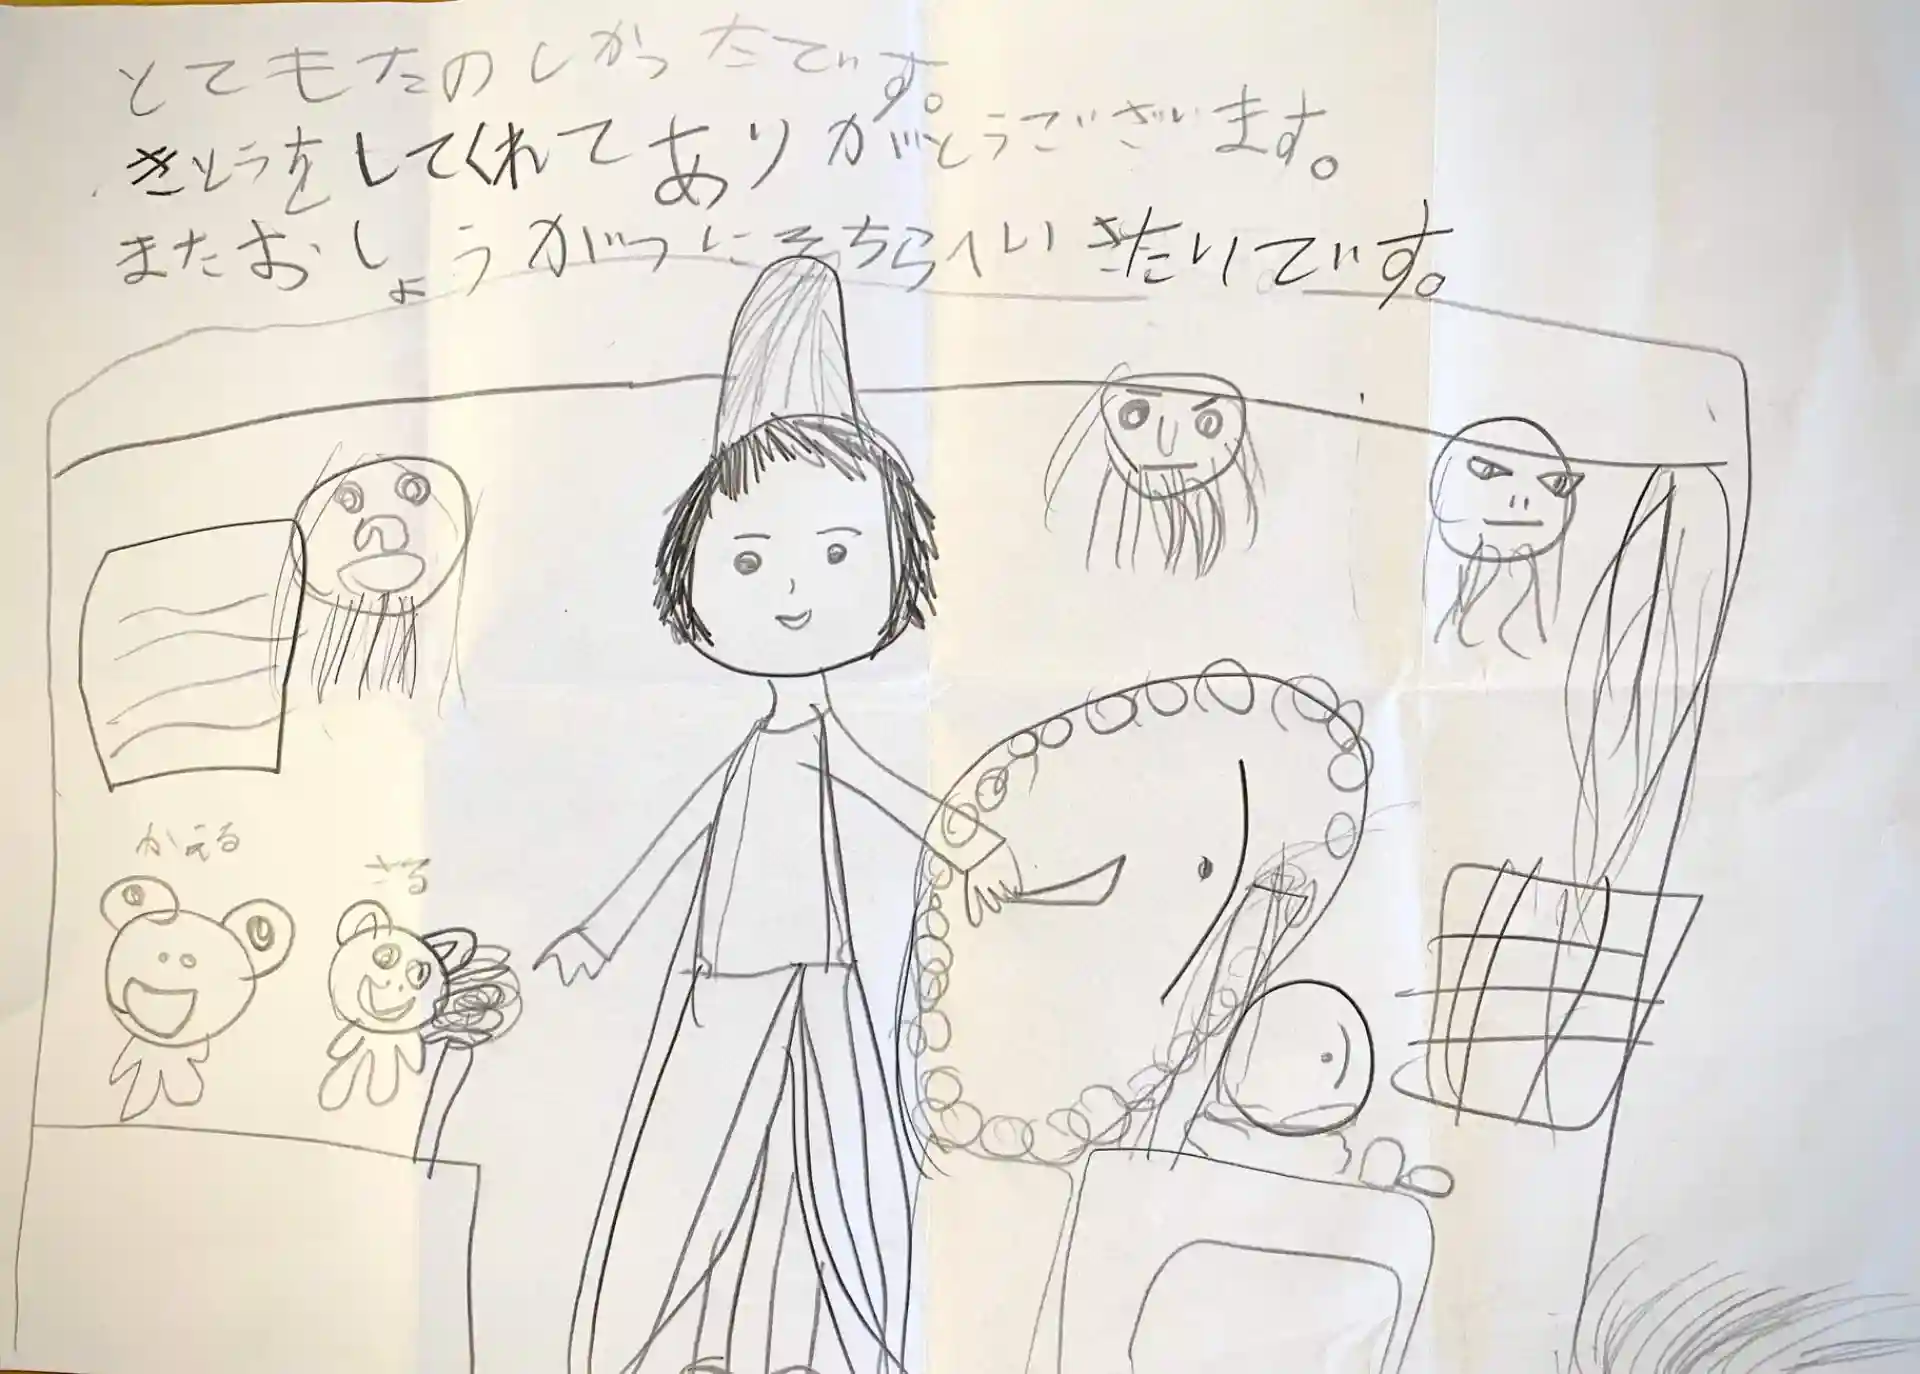 とてもたのしかったです。
きとうをしてくれてありがとうございます。
またおしょうがつにそちらへいきたいです。
かえる
さる